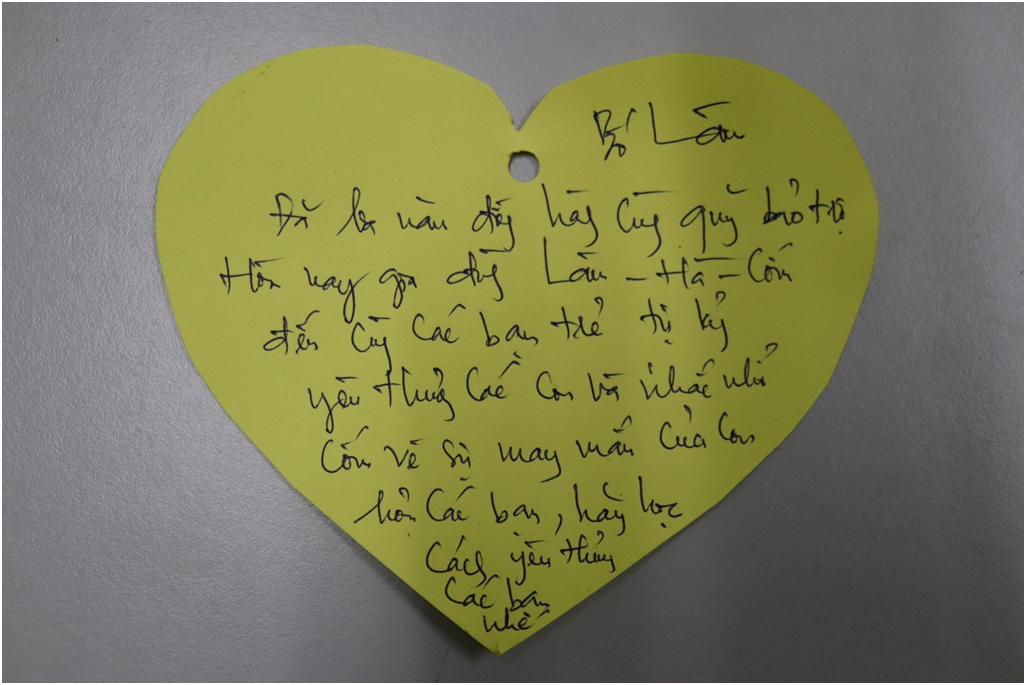 Bố Lâm
Đã ba năm đồng hành cùng quỹ bảo trợ
Hôm nay gia đình Lâm - Hà - Cốm
đến cùng các bạn trẻ tự kỷ
yêu thương các con và nhắc nhở
Cốm về sự may mắn của con
hơn các bạn, hãy học
cách yêu thương
các bạn
nhé